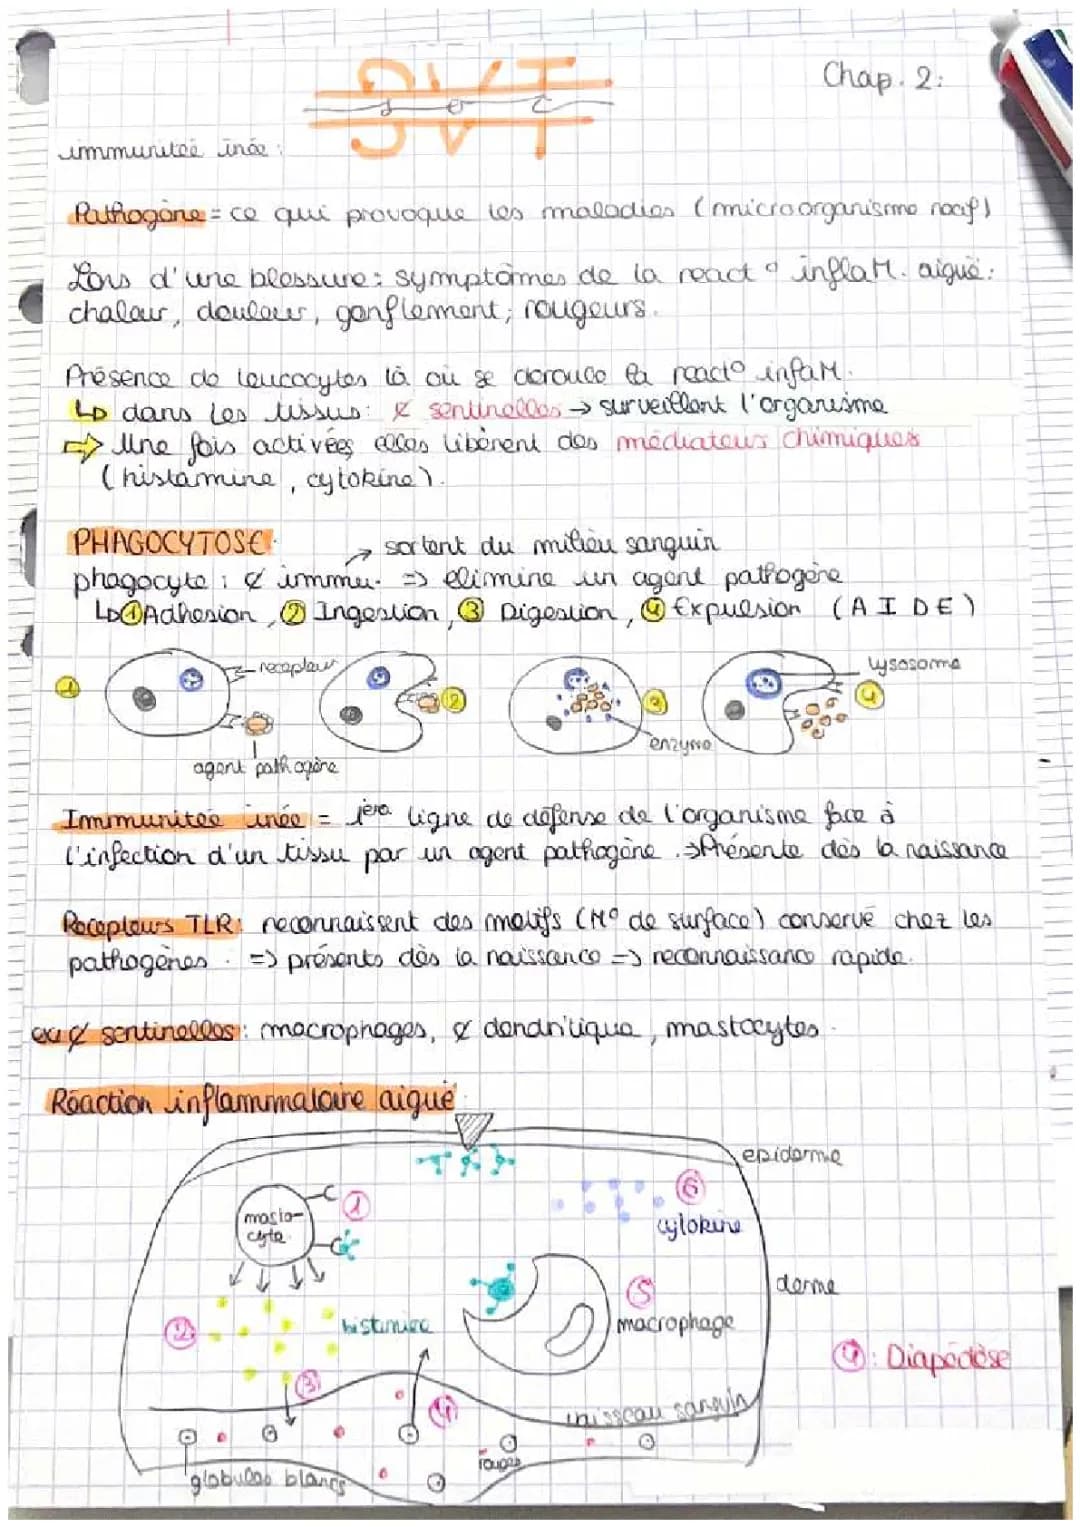 SVT
Chap. 2:
immunitée inée :
Pathogène = ce qui provoque les maladies (microorganisme nocif)
Lors d'une blessure : symptômes de la react° inflaM. aiguë :
chaleur, douleur, gonflement, rougeurs.
Présence de leucocytes là où se deroule la react° infaM.
dans les tissus : ¢ sentinelles → surveillent l'organisme
⇒ Une fois activées elles libèrent des médiateurs chimiques
(histamine, cytokine).
PHAGOCYTOSE
→ sortent du milieu sanguin
phagocyte : ¢ immu. => elimine un agent pathogène
① Adhesion, ② Ingestion, ③ Digestion, ④ Expulsion (A I D E)
1 recepteur 2 3 lysosome 4
enzyme
agent pathogène
Immunitée inée = 1ère ligne de défense de l'organisme face à
l'infection d'un tissu par un agent pathogène. ⇒ Présente dès la naissance
Recepteurs TLR : reconnaissent des motifs (M° de surface) conservé chez les
pathogènes. => présents dès la naissance => reconnaissance rapide.
ex ¢ sentinelles : macrophages, ¢ dendritique, mastocytes.
Réaction inflammatoire aiguë
epiderme
masto-
cyte
①
⑥
cytokine
derme
②
histamine
⑤
macrophage
④ : Diapédèse
③
④
vaisseau sanguin
rouges
globules blancs